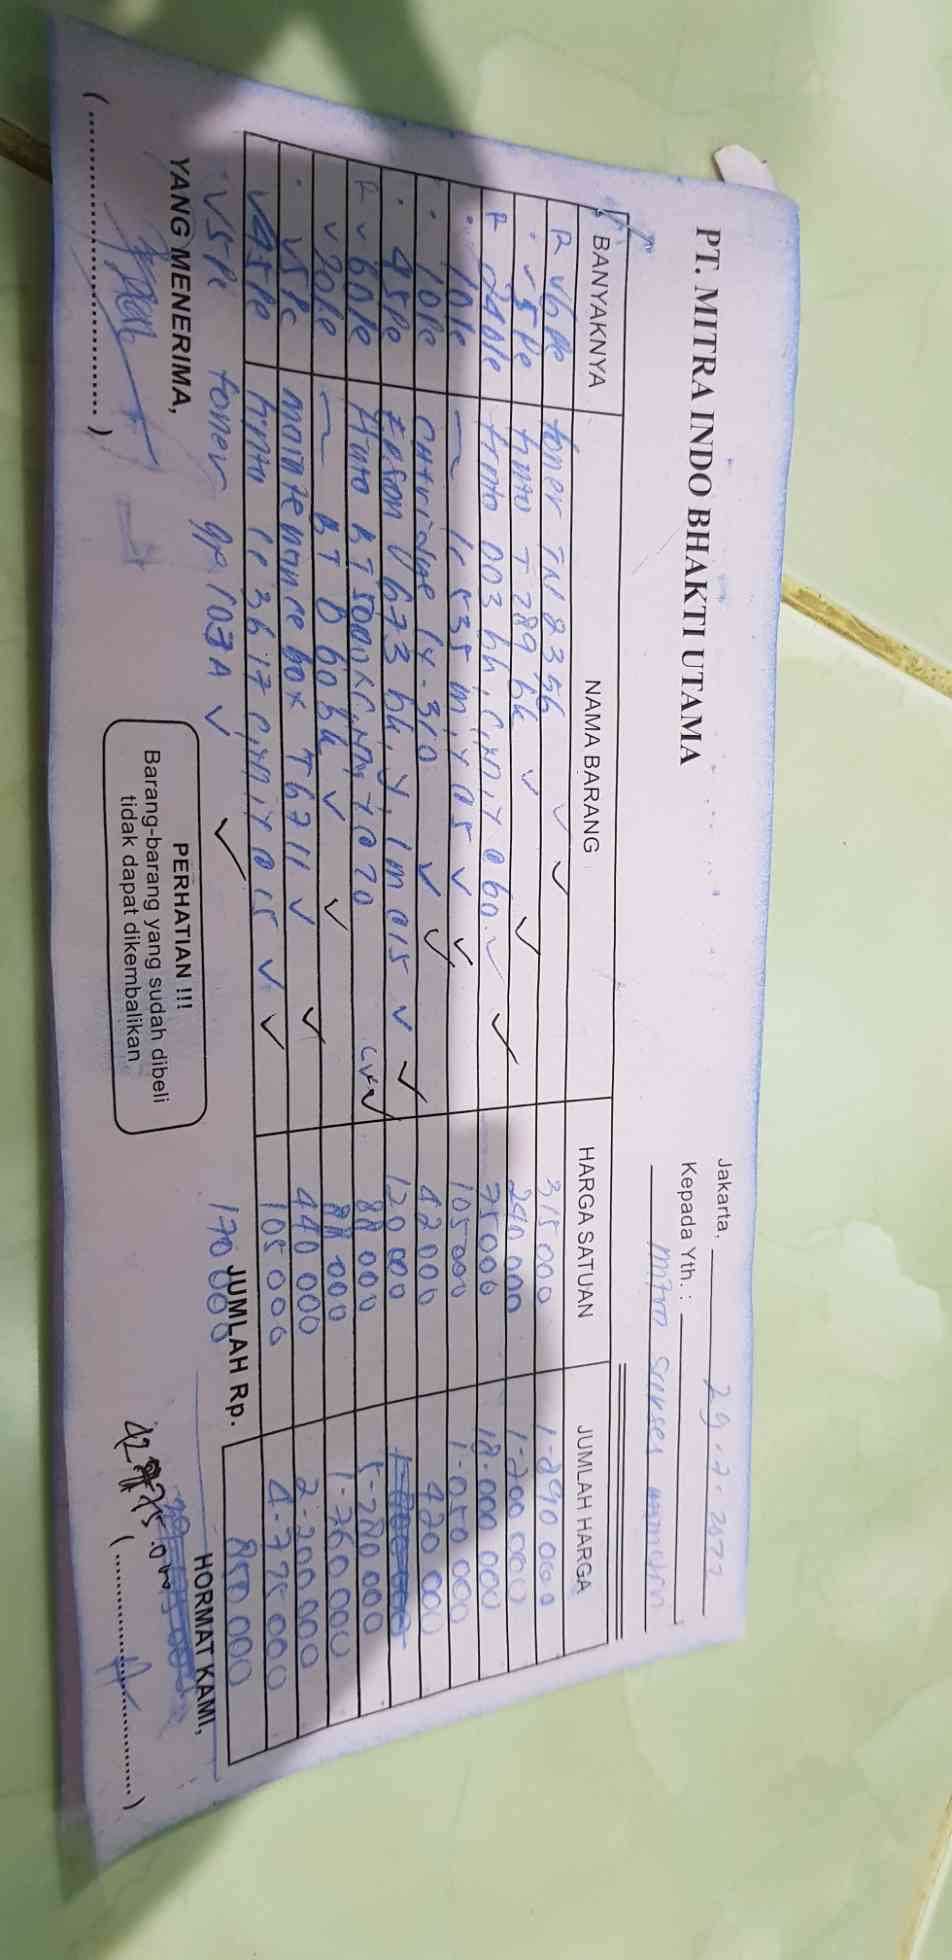 PT. MITRA INDO BHAKTI UTAMA
Jakarta, 29-7-2022
Kepada Yth. :
mitra sukses
BANYAKNYA NAMA BARANG HARGA SATUAN JUMLAH HARGA
toner TN 2356 315000 1-890 000
5 Pc tinta T 289 bk 240 000 1-200 000
tinta 003 bk, C, M, Y @ 60 75000 18.000 000
10 Pc 535 M, Y @ 5 105000 1-050 000
10 Pc 42000 420 000
45 Pc Epson 673 bk, Y, lm @ 15 120 000
60 Pc tinta BT 5000 C, M, Y @ 20 88 000 5-280 000
20 Pc BT D 60 bk 88 000 1-760 000
5 Pc maintenance box T6711 440 000 2-200 000
45 Pc tinta C, M, Y @ 15 105 000 4-725 000
5 Pc toner 107A 170 000 850 000
JUMLAH Rp.
YANG MENERIMA,
PERHATIAN !!!
Barang-barang yang sudah dibeli
tidak dapat dikembalikan
HORMAT KAMI,
(..............................)
(..............................)